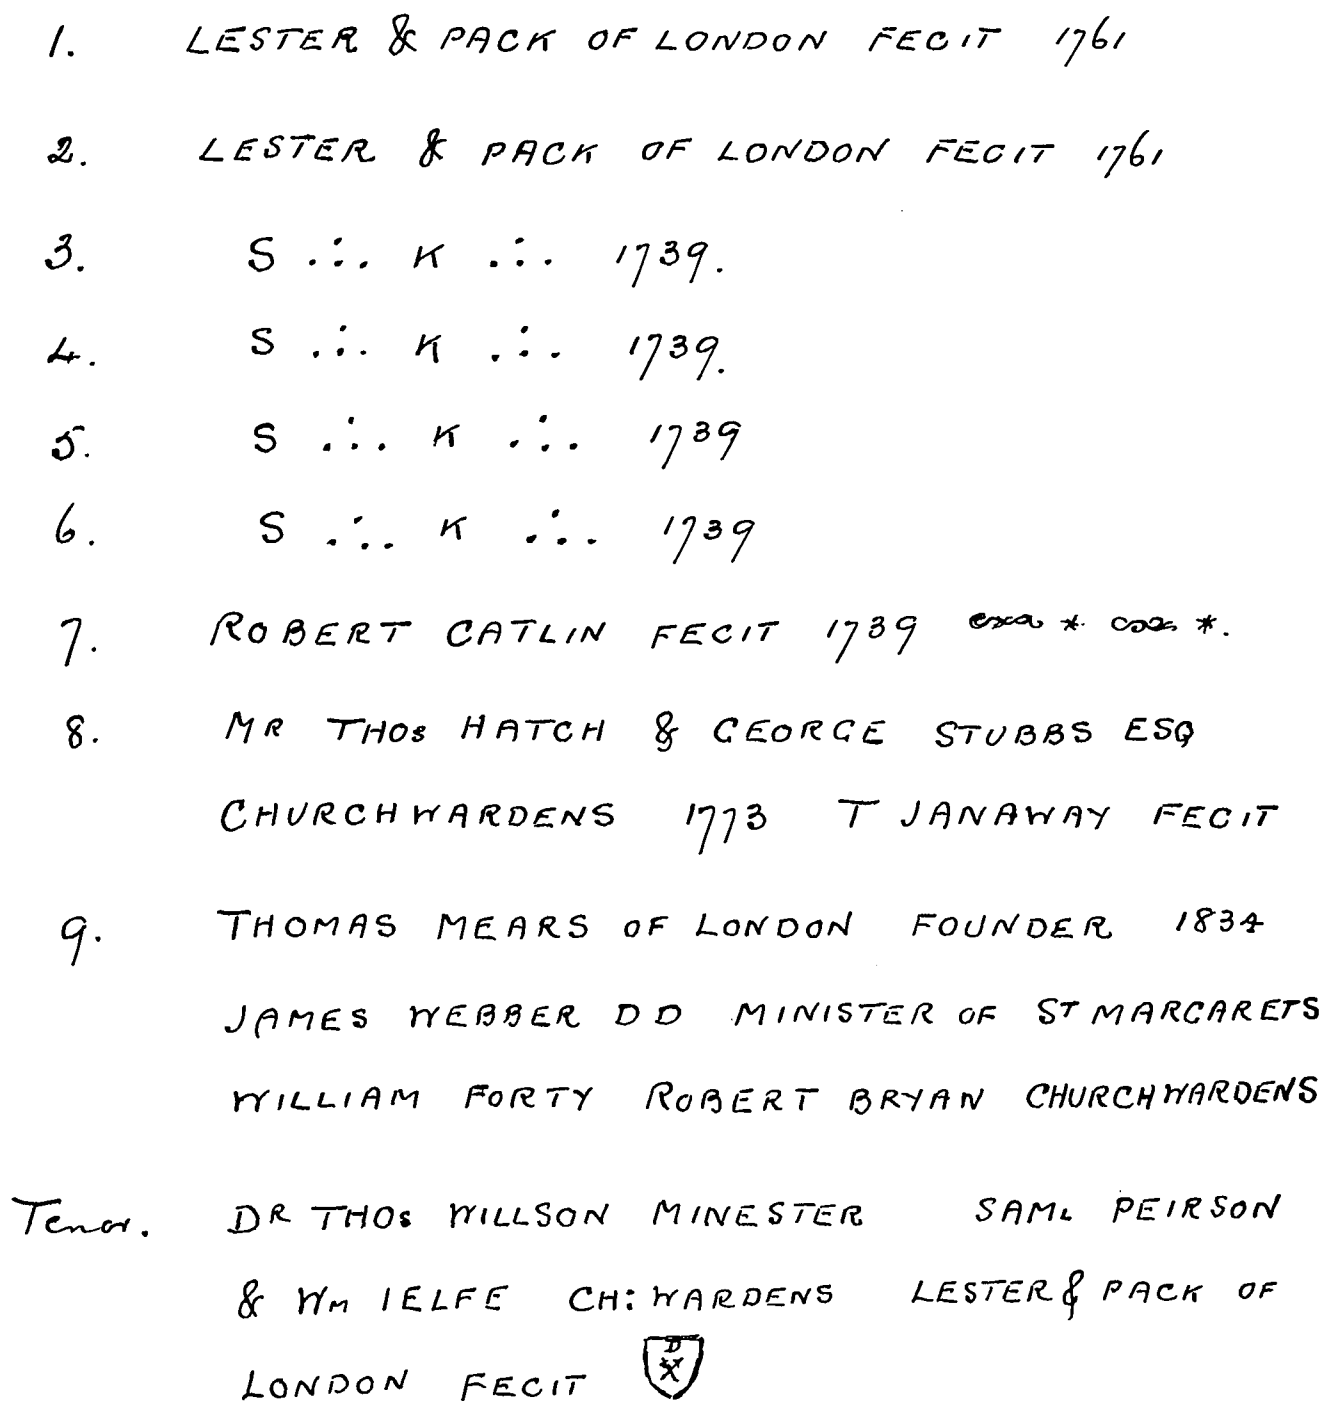 1. LESTER & PACK OF LONDON FECIT 1761
2. LESTER & PACK OF LONDON FECIT 1761
3. S ∴ K ∴ 1739.
4. S ∴ K ∴ 1739.
5. S ∴ K ∴ 1739
6. S ∴ K ∴ 1739
7. ROBERT CATLIN FECIT 1739 * *.
8. MR THOS HATCH & GEORGE STUBBS ESQ
CHURCHWARDENS 1773 T JANAWAY FECIT
9. THOMAS MEARS OF LONDON FOUNDER 1834
JAMES WEBBER DD MINISTER OF ST MARGARETS
WILLIAM FORTY ROBERT BRYAN CHURCHWARDENS
Tenor. DR THOS WILLSON MINESTER SAML PEIRSON
& WM IELFE CH: WARDENS LESTER & PACK OF
LONDON FECIT